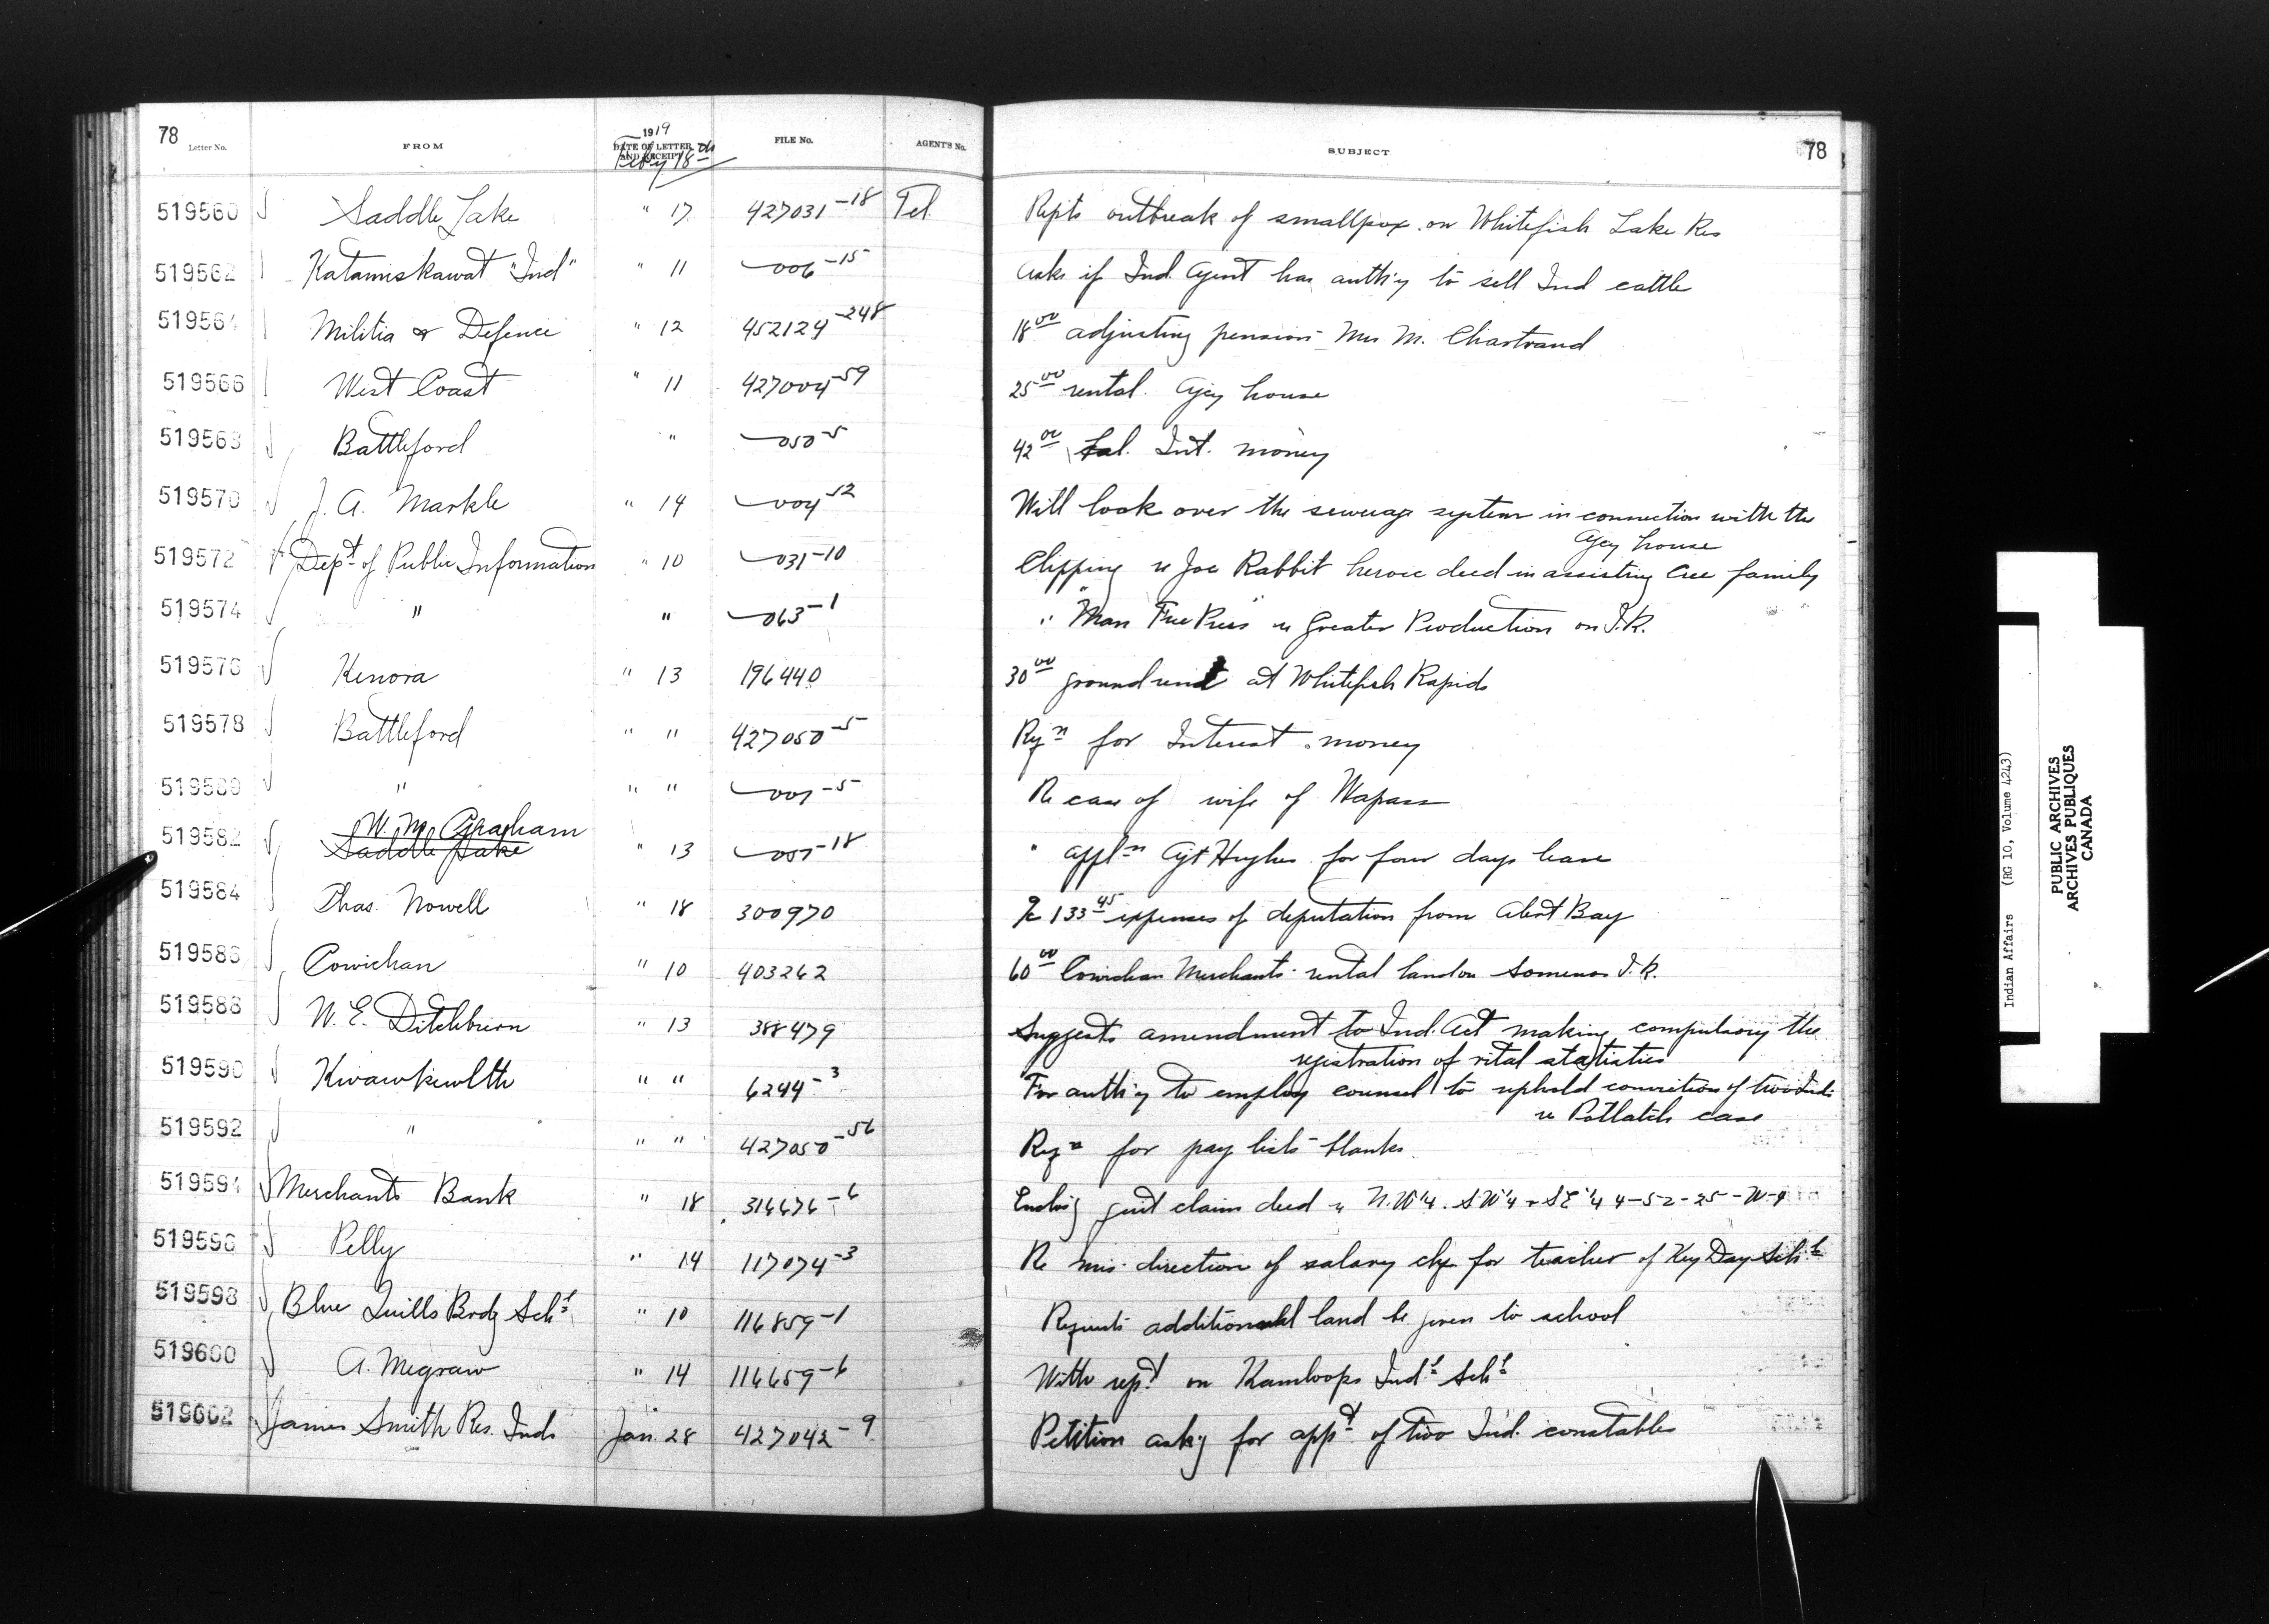 78 Letter No. FROM 1919 DATE OF LETTER AND RECEIPT FILE No. AGENT'S No. SUBJECT 78
Feby 18th
519560 Saddle Lake " 17 427031-18 Tel. Repts outbreak of smallpox on Whitefish Lake Res
519562 Katamiskawat "Ind" " 11 006-15 Asks if Ind. Agent has auth'y to sell Ind cattle
519564 Militia & Defence " 12 452124-248 18 00 adjusting pension Mrs M. Chartrand
519566 West Coast " 11 427004-59 25 00 rental Agcy house
519568 Battleford " 050-5 42 00 Int. money
519570 J. A. Markle " 14 004-52 Will look over the sewerage system in connection with the
Agcy house
519572 Dept of Public Information " 10 031-10 Clipping re Joe Rabbit heroic deed in assisting Cree family
519574 " " 063-1 " "Man Free Press" re Greater Production on I.R.
519576 Kenora " 13 196440 30 00 ground rent at Whitefish Rapids
519578 Battleford " " 427050-5 Rqn for Interest money
519580 " " " 007-5 Re case of wife of Wapass
W. M. Graham
519582 Saddle Lake " 13 057-18 " appln Agt Hughes for four days leave
519584 Chas. Nowell " 18 300970 a/c 133 45 expenses of deputation from Alert Bay
519586 Cowichan " 10 403262 60 00 Cowichan Merchants rental land on Somenos I.R.
519588 W. E. Ditchburn " 13 388479 Suggests amendment to Ind. Act making compulsory the
registration of vital statistics
519590 Kwawkewlth " " 6244-3 For auth'y to employ counsel to uphold conviction of two Inds
re Potlatch case
519592 " " " 427050-56 Rqn for pay lists blanks
519594 Merchants Bank " 18 316676-6 Enclos'g quit claim deed re N.W¼. SW¼ + SE¼ 4-52-25-W-4
519596 Pelly " 14 117074-3 Re mis-direction of salary chq for teacher of Key Day Schl
519598 Blue Quills Brdg Schl " 10 116859-1 Requests additional land be given to school
519600 A. Megraw " 14 116659-6 With rept on Kamloops Indl Schl
519602 James Smith Res. Inds Jan. 28 427042-9 Petition ask'g for appt of two Ind. constables
Indian Affairs (RG 10, Volume 4243)
PUBLIC ARCHIVES
ARCHIVES PUBLIQUES
CANADA